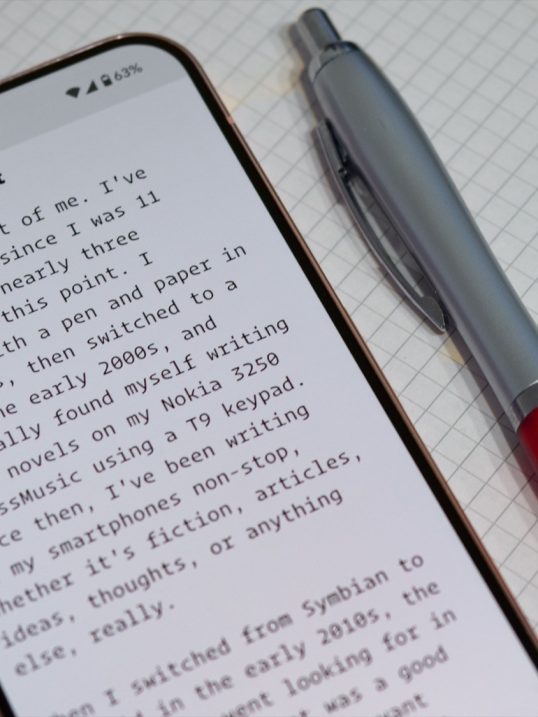 63%
t of me. I've
since I was 11
nearly three
this point. I
th a pen and paper in
, then switched to a
he early 2000s, and
ally found myself writing
novels on my Nokia 3250
ssMusic using a T9 keypad.
ce then, I've been writing
my smartphones non-stop,
hether it's fiction, articles,
ideas, thoughts, or anything
else, really.
hen I switched from Symbian to
d in the early 2010s, the
went looking for in
t was a good
vant